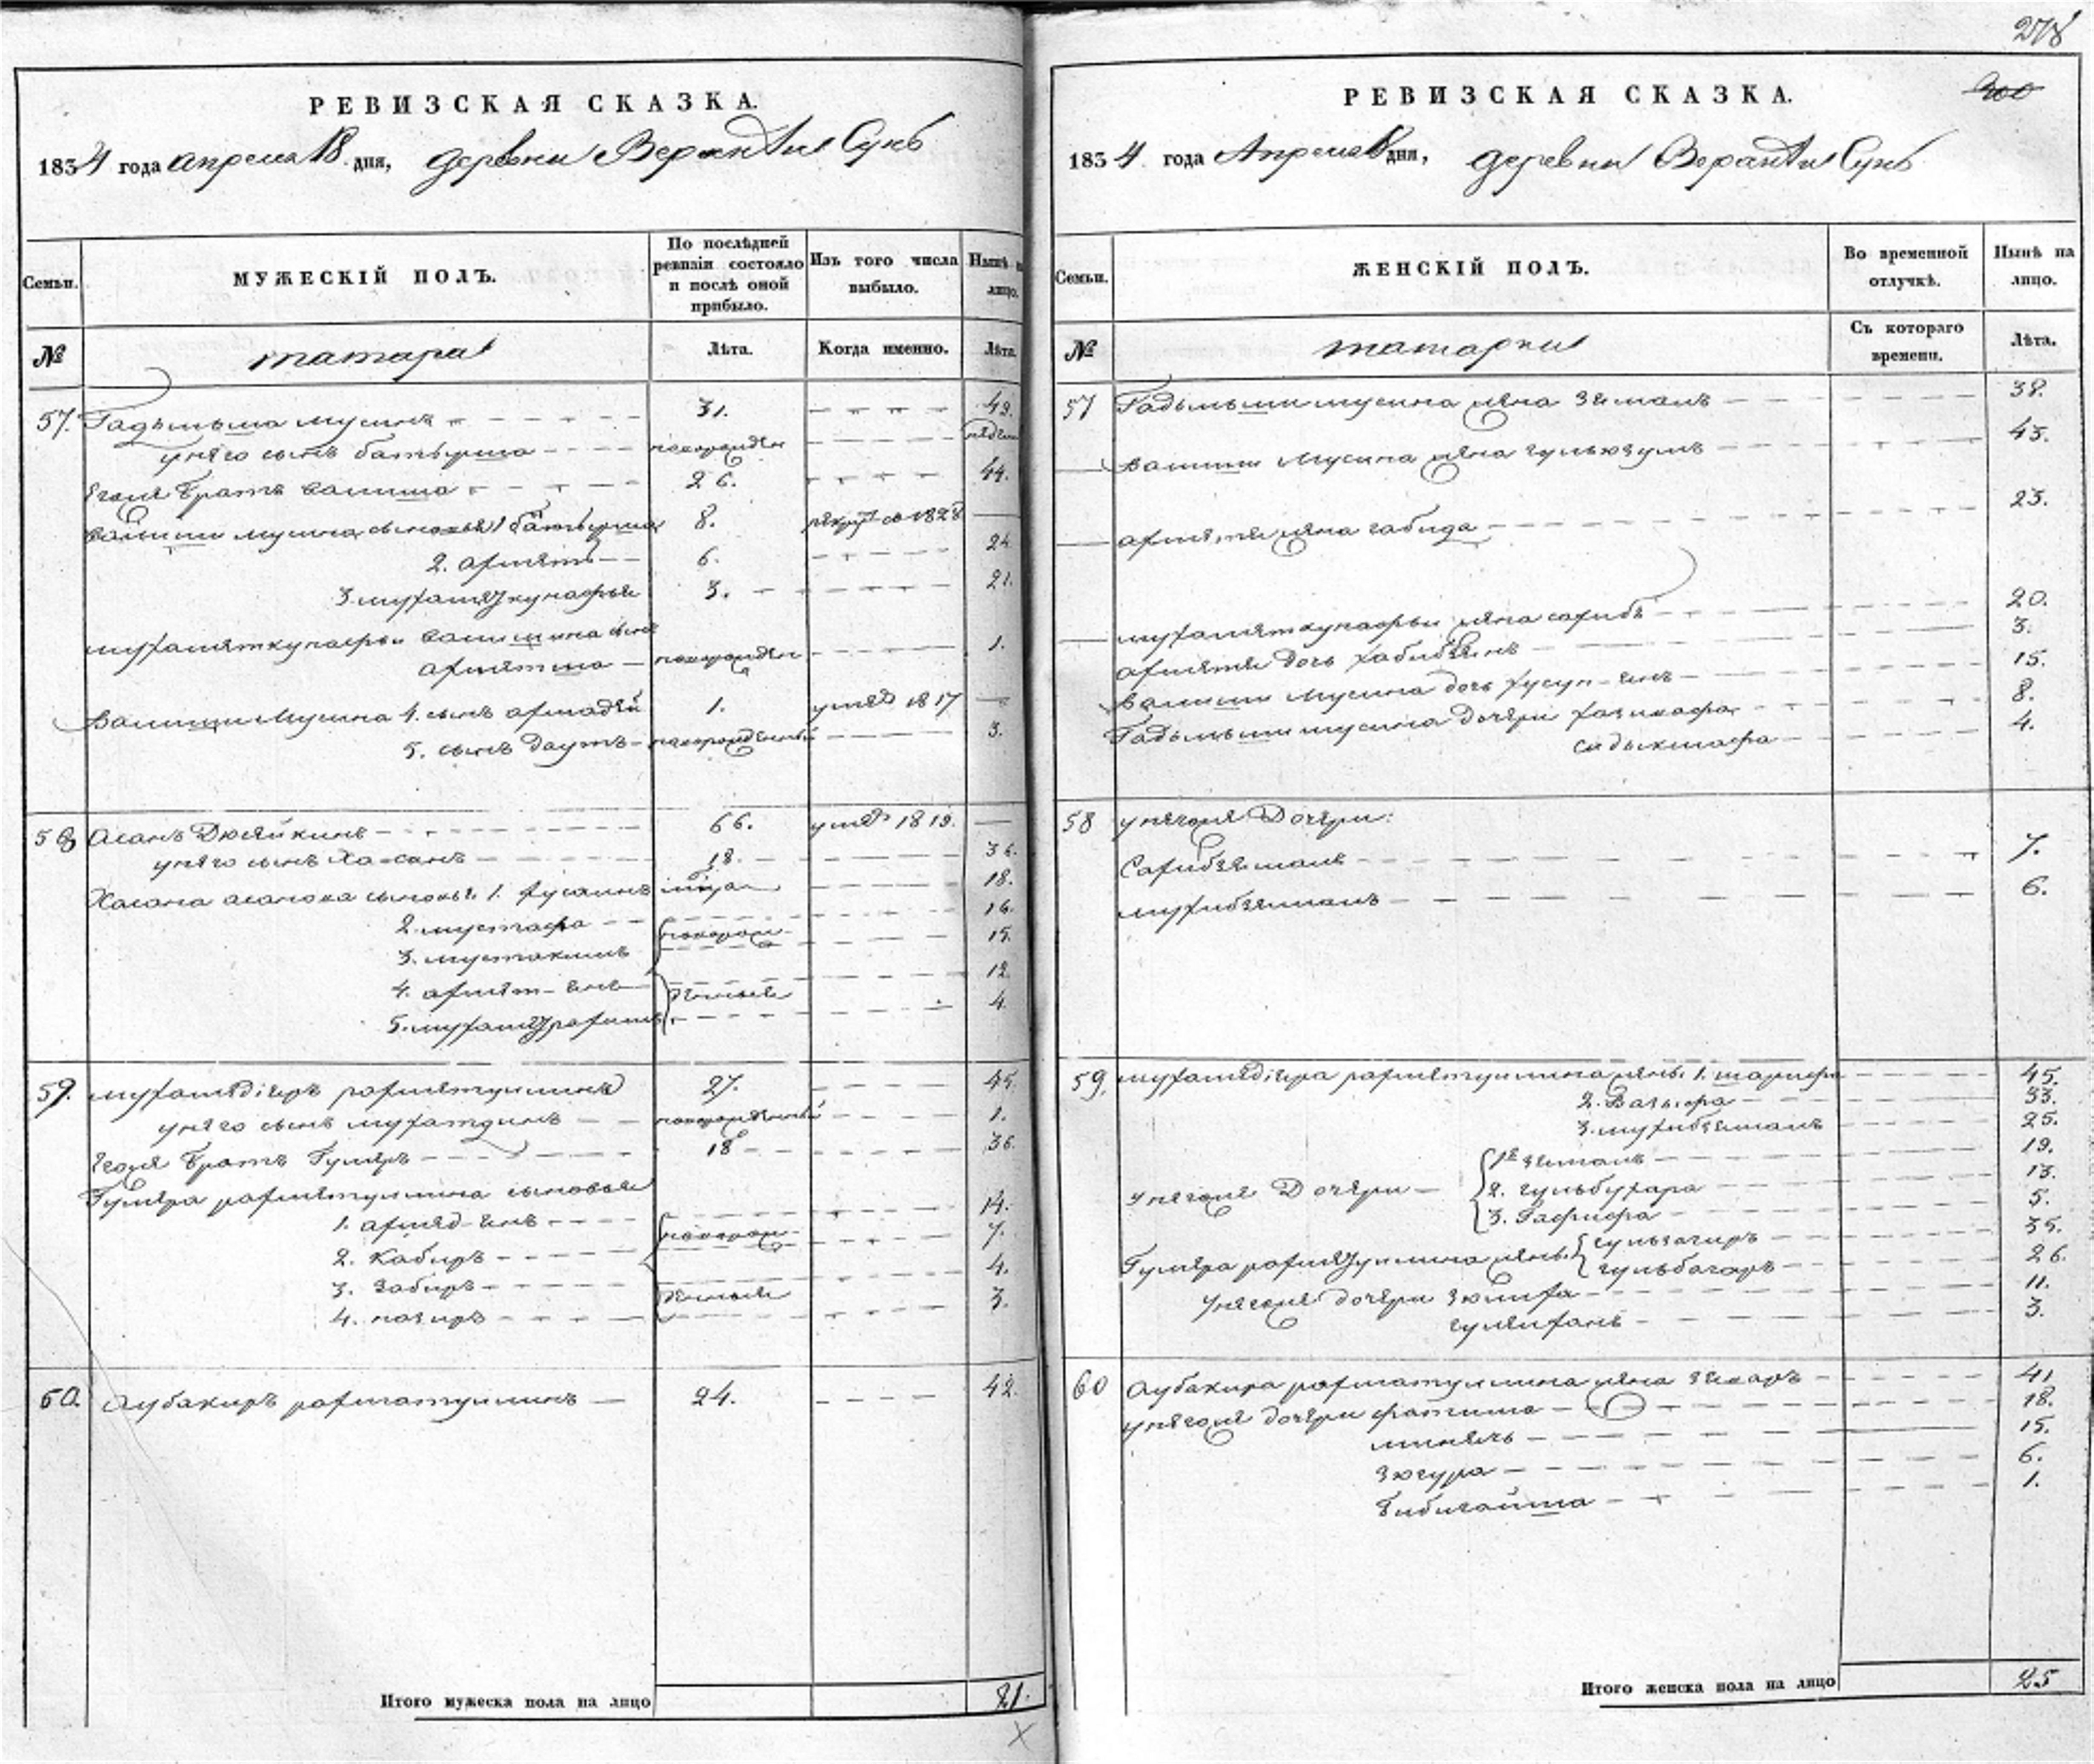 РЕВИЗСКАЯ СКАЗКА.
1834 года апреля 18 дня, деревни Верхнiя Сунь
Семьи. МУЖЕСКІЙ ПОЛЪ. По послѣдней ревизіи состояло и послѣ оной прибыло. Изъ того числа выбыло. Нынѣ на лицо.
№ татара Лѣта. Когда именно. Лѣта.
57. Гадыльша мусинъ 31. 49.
у него сынъ батырша новорожден недели
Егоже братъ валиша 26. 44.
валиши мусина сыновья 1 батырша 8. рекрут в 1828
2. ахметъ 6. 24
3. мухамядкунафья 3. 21.
мухаметкунафьи валишина сынъ
ахметша новорожден 1.
Валиши Мусина 4. сынъ ахмадей 1. умеръ 1817
5. сынъ даутъ новорожденный 3.
58 Асанъ Дюсейкинъ 66. умеръ 1819.
у него сынъ Хасанъ 18. 36.
Хасана асанова сыновья 1. хусаинъ 18.
2. мустафа новорож 16.
3. мустакимъ 15.
4. ахмет-янъ денные 12.
5. мухамядрахимъ 4.
59. мухамядіяръ рахметуллинъ 27. 45.
у него сынъ мухатдинъ новорожденный 1.
Егоже братъ Гумяръ 18 36.
Гумяра рахметуллина сыновья
1. ахмед-янъ новорож 14.
2. Кабиръ 7.
3. Забиръ денные 4.
4. назиръ 3.
60. Аубакиръ рахматуллинъ 24. 42.
Итого мужеска пола на лицо 21.
278
300
РЕВИЗСКАЯ СКАЗКА.
1834 года Апреля 18 дня, деревни Верхнiя Сунь
Семьи. ЖЕНСКІЙ ПОЛЪ. Во временной отлучкѣ. Нынѣ на лицо.
№ татарки Съ котораго времени. Лѣта.
57 Гадыльши мусина жена земаль 38.
Валиши Мусина жена гульюзумъ 43.
ахметя жена габида 23.
мухаметкунафьи жена сахибъ 20.
ахметя дочь хабибзянъ 3.
Валиши Мусина дочь хусун-янъ 15.
Гадыльши мусина дочери 8.
садыкшафа 4.
58 у негоже Дочери:
Сахибземаль 7.
мухибземаль 6.
59. мухамядіяра рахметуллина жены 1. шарифа 45.
2. Вазифа 33.
3. мухибземаль 25.
у негоже Дочери 1я земаль 19.
2. гульбухара 13.
3. Гафифа 5.
Гумяра рахметуллина жены гульзагиръ 35.
гульбагаръ 26.
У негоже дочери Зюлифа 11.
гулямханъ 3.
60 Аубакира рахматуллина жена 41
у негоже дочери фатима 18.
минлечь 15.
Зюгура 6.
бибигайша 1.
Итого женска пола на лицо 25